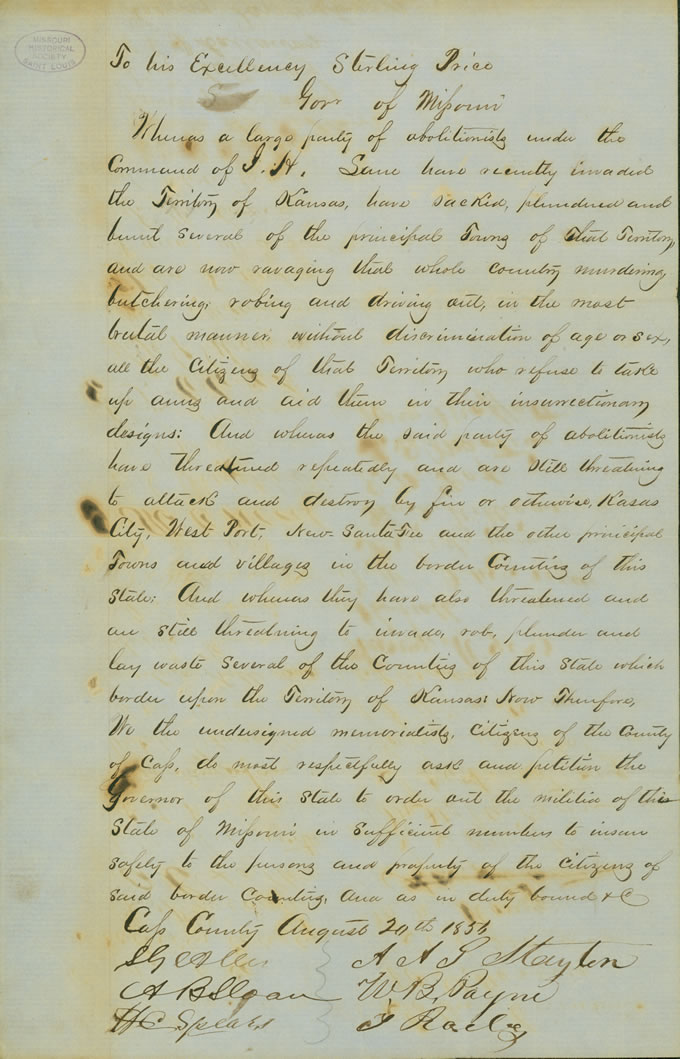 MISSOURI
HISTORICAL
SOCIETY
SAINT LOUIS
To his Excellency Sterling Price
Govr of Missouri
Whereas a large party of abolitionists under the
Command of J. H. Lane have recently invaded
the Territory of Kansas, have sacked, plundered and
burnt several of the principal Towns of that Territory,
and are now ravaging that whole country murdering,
butchering, robing and driving out, in the most
brutal manner, without discrimination of age or sex,
all the Citizens of that Territory who refuse to take
up arms and aid them in their insurrectionary
designs: And whereas the said party of abolitionists
have threatened repeatedly and are still threatning
to attack and destroy by fire or otherwise, Kasas
City, West Port, New-Santa Fee and the other principal
Towns and villages in the border Counties of this
State: And whereas they have also threatened and
are still threatning to invade, rob, plunder and
lay waste several of the Counties of this State which
border upon the Territory of Kansas: Now Therefore,
We the undersigned memorialists, Citizens of the County
of Cass, do most respectfully ask and petition the
Governor of this State to order out the militia of this
State of Missouri in sufficient numbers to insure
safety to the persons and property of the citizens of
said border Counties, And as in duty bound & C
Cass County August 20th 1856
A A S Stayton
A B Sloan W. B. Payne
H C Spears